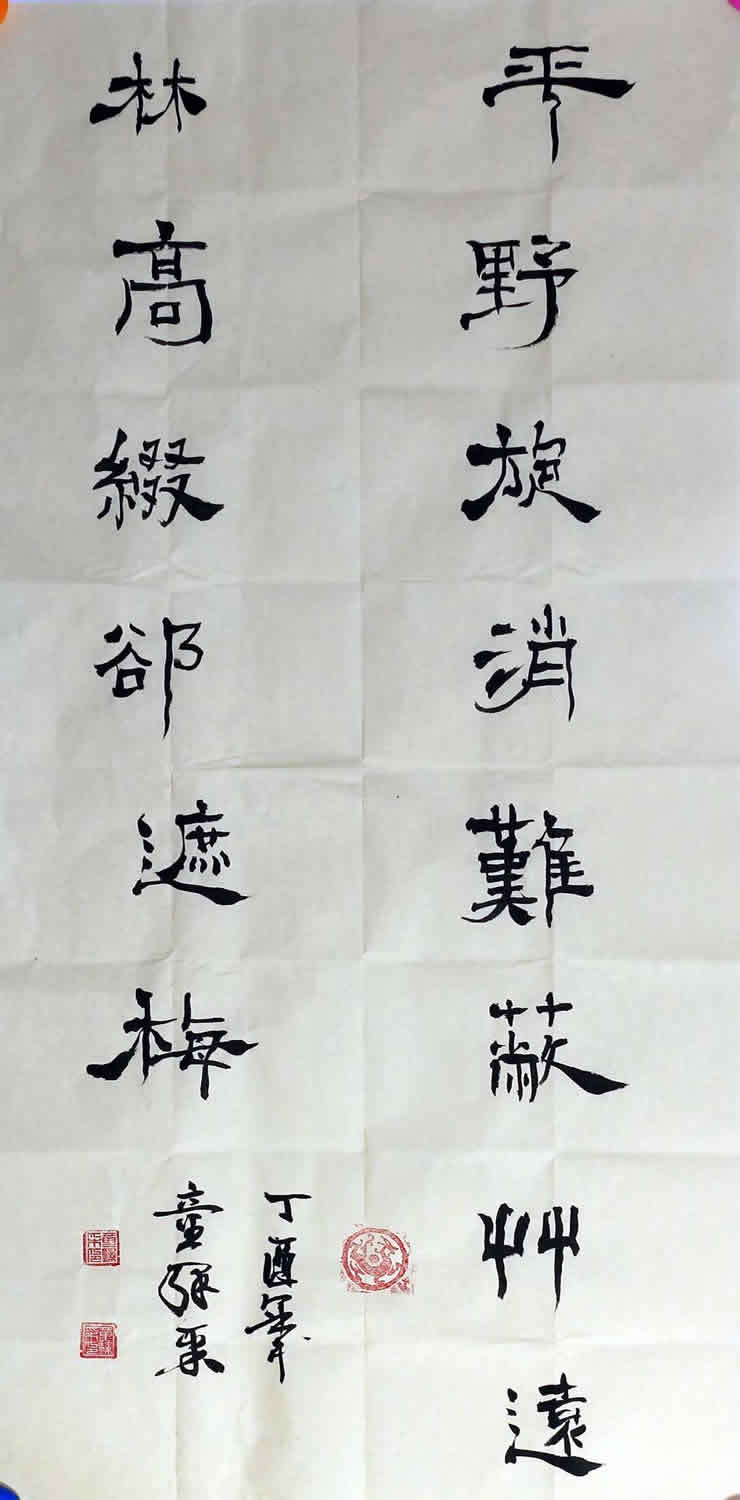 平野旋消難蔽艸遠
林高綴卻遮梅
丁酉年
童